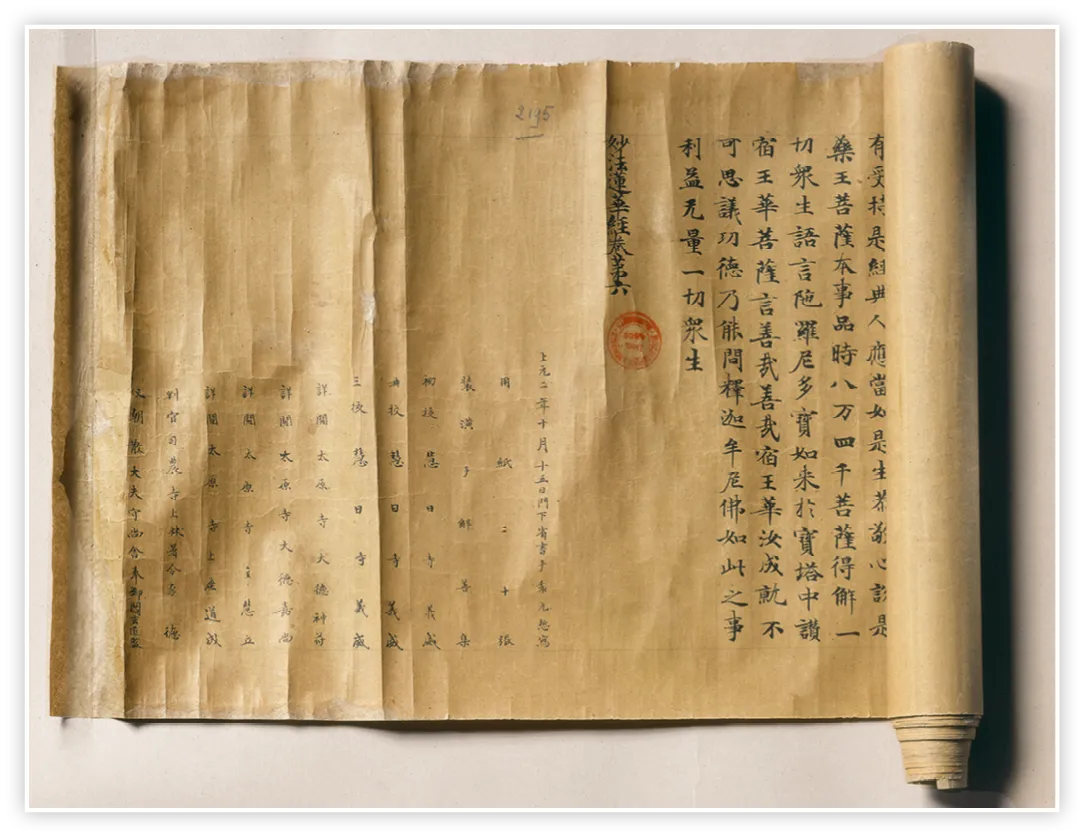 有受持是經典人應當如是生恭敬心說是
藥王菩薩本事品時八万四千菩薩得解一
切衆生語言陁羅尼多寶如来於寶塔中讃
宿王華菩薩言善㢤善㢤宿王華汝成就不
可思議功德乃能問釋迦牟尼佛如此之事
利益无量一切衆生
妙法蓮華經卷第六
2195
上元二年十月十五日門下省書手袁元悊寫
用紙二十張
裝潢手解善集
初校慧日寺義威
再校慧日寺義威
三校慧日寺義威
詳閱太原寺大德神苻
詳閱太原寺大德嘉尚
詳閱太原寺主慧立
詳閱太原寺上座道成
判官司農寺上林署令李德
朝散大夫守尚舍奉御閻玄道監